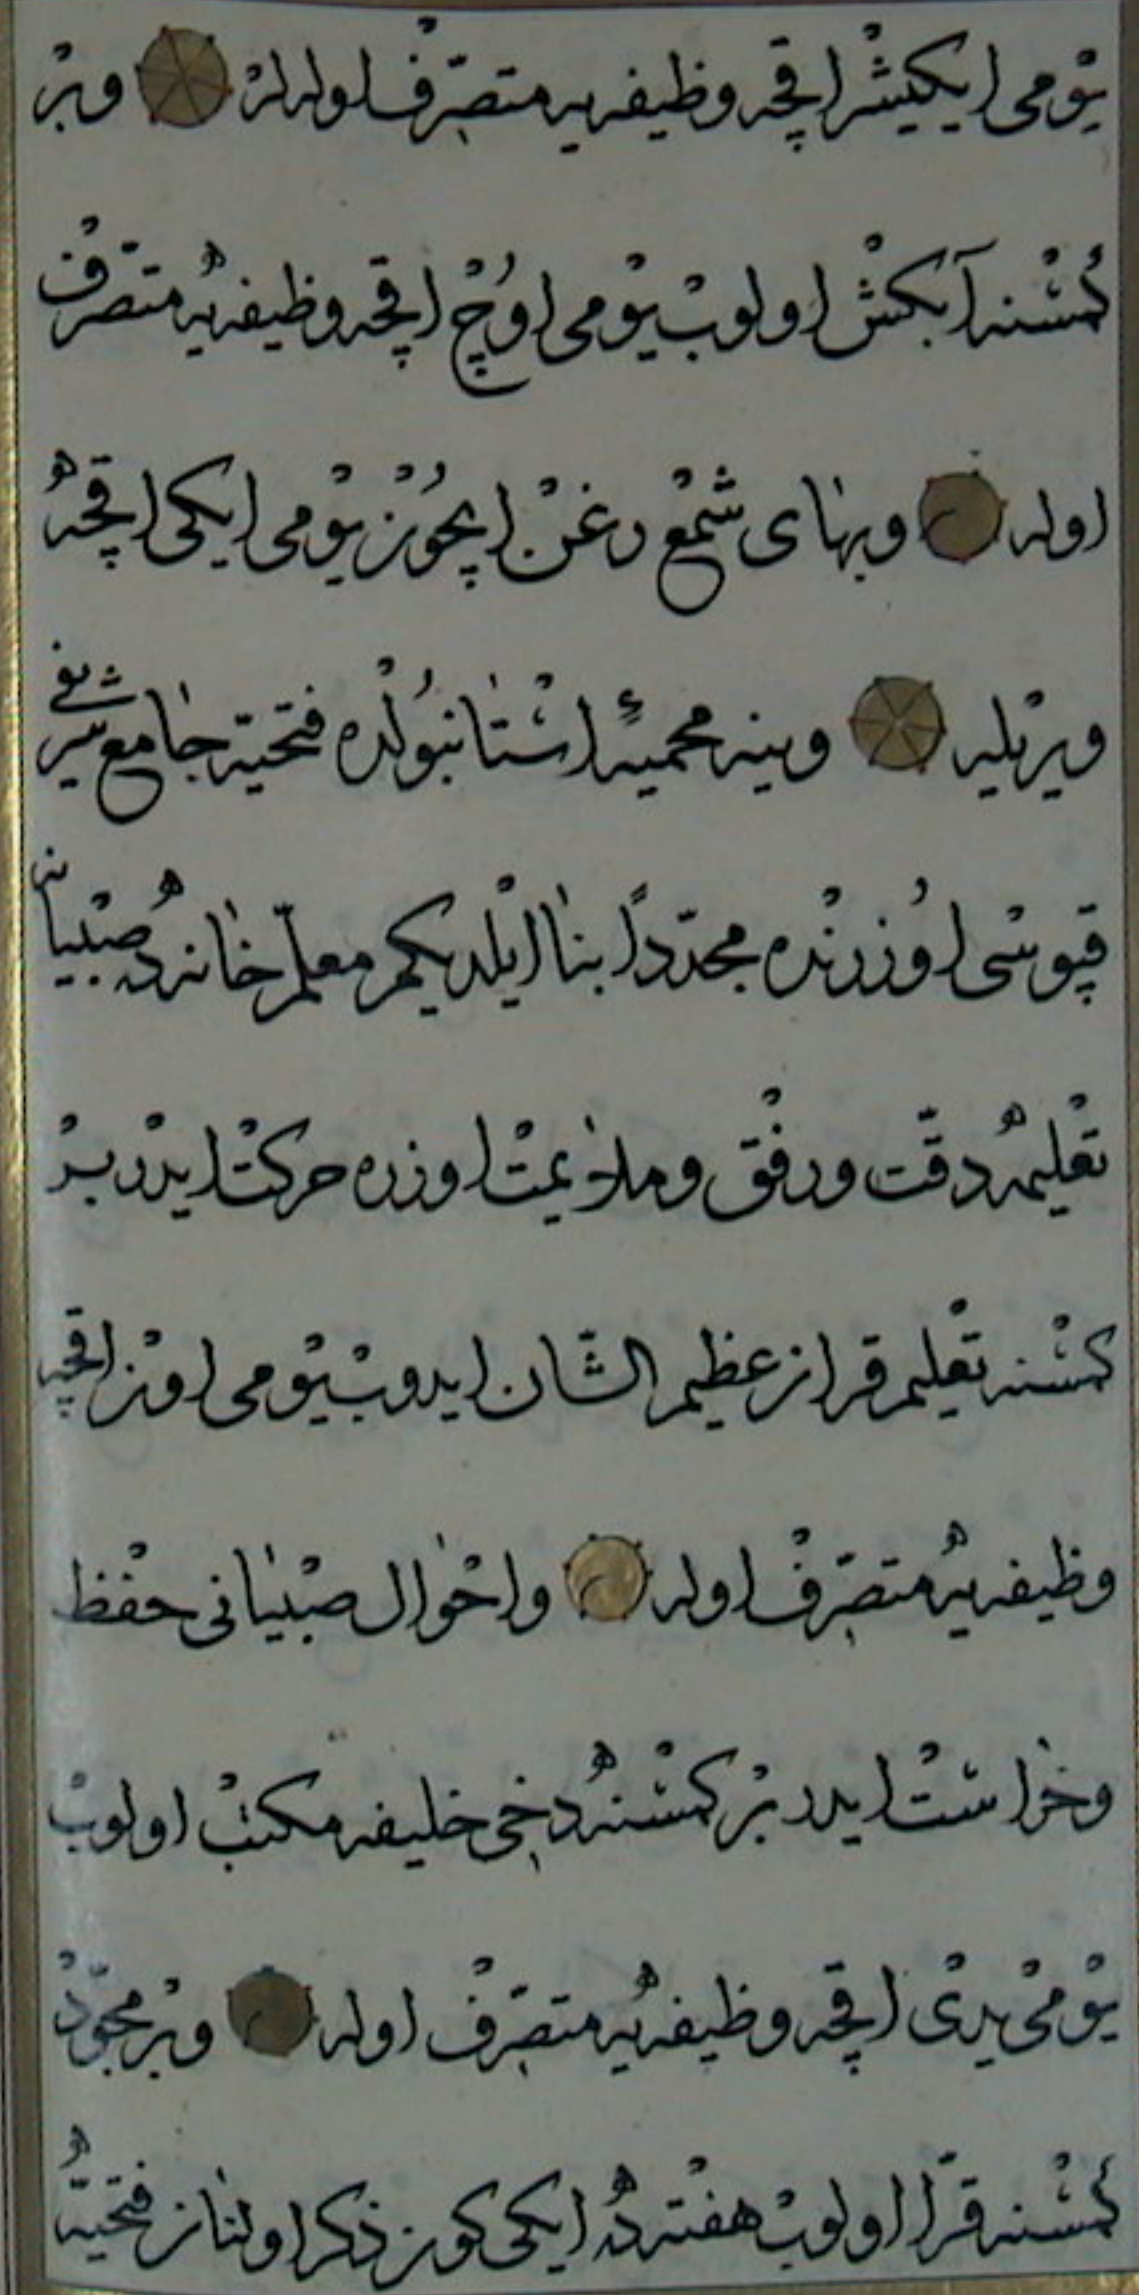 يومى ايكيشر اقچه وظيفه‌يه متصرف اوله‌لر وبر
كمسنه آبكش اولوب يومى اوچ اقچه وظيفه‌يه متصرف
اوله وبهاى شمع روغن ايچون يومى ايكى اقچه
ويريله وينه محميۀ استانبولده فتحيه جامع شريفى
قپوسى اوزرنده مجدداً بنا ايلديكم معلمخانه‌ده صبيانى
تعليمه دقت ورفق وملايمت اوزره حركت ايدر بر
كمسنه تعليم قران عظيم الشان ايدوب يومى اون اقچه
وظيفه‌يه متصرف اوله واحوال صبيانى حفظ
وحراست ايدر بر كمسنه دخى خليفه مكتب اولوب
يومى يدى اقچه وظيفه‌يه متصرف اوله وبر مجود
كمسنه قرّا اولوب هفته‌ده ايكى كون ذكر اولنان فتحيه